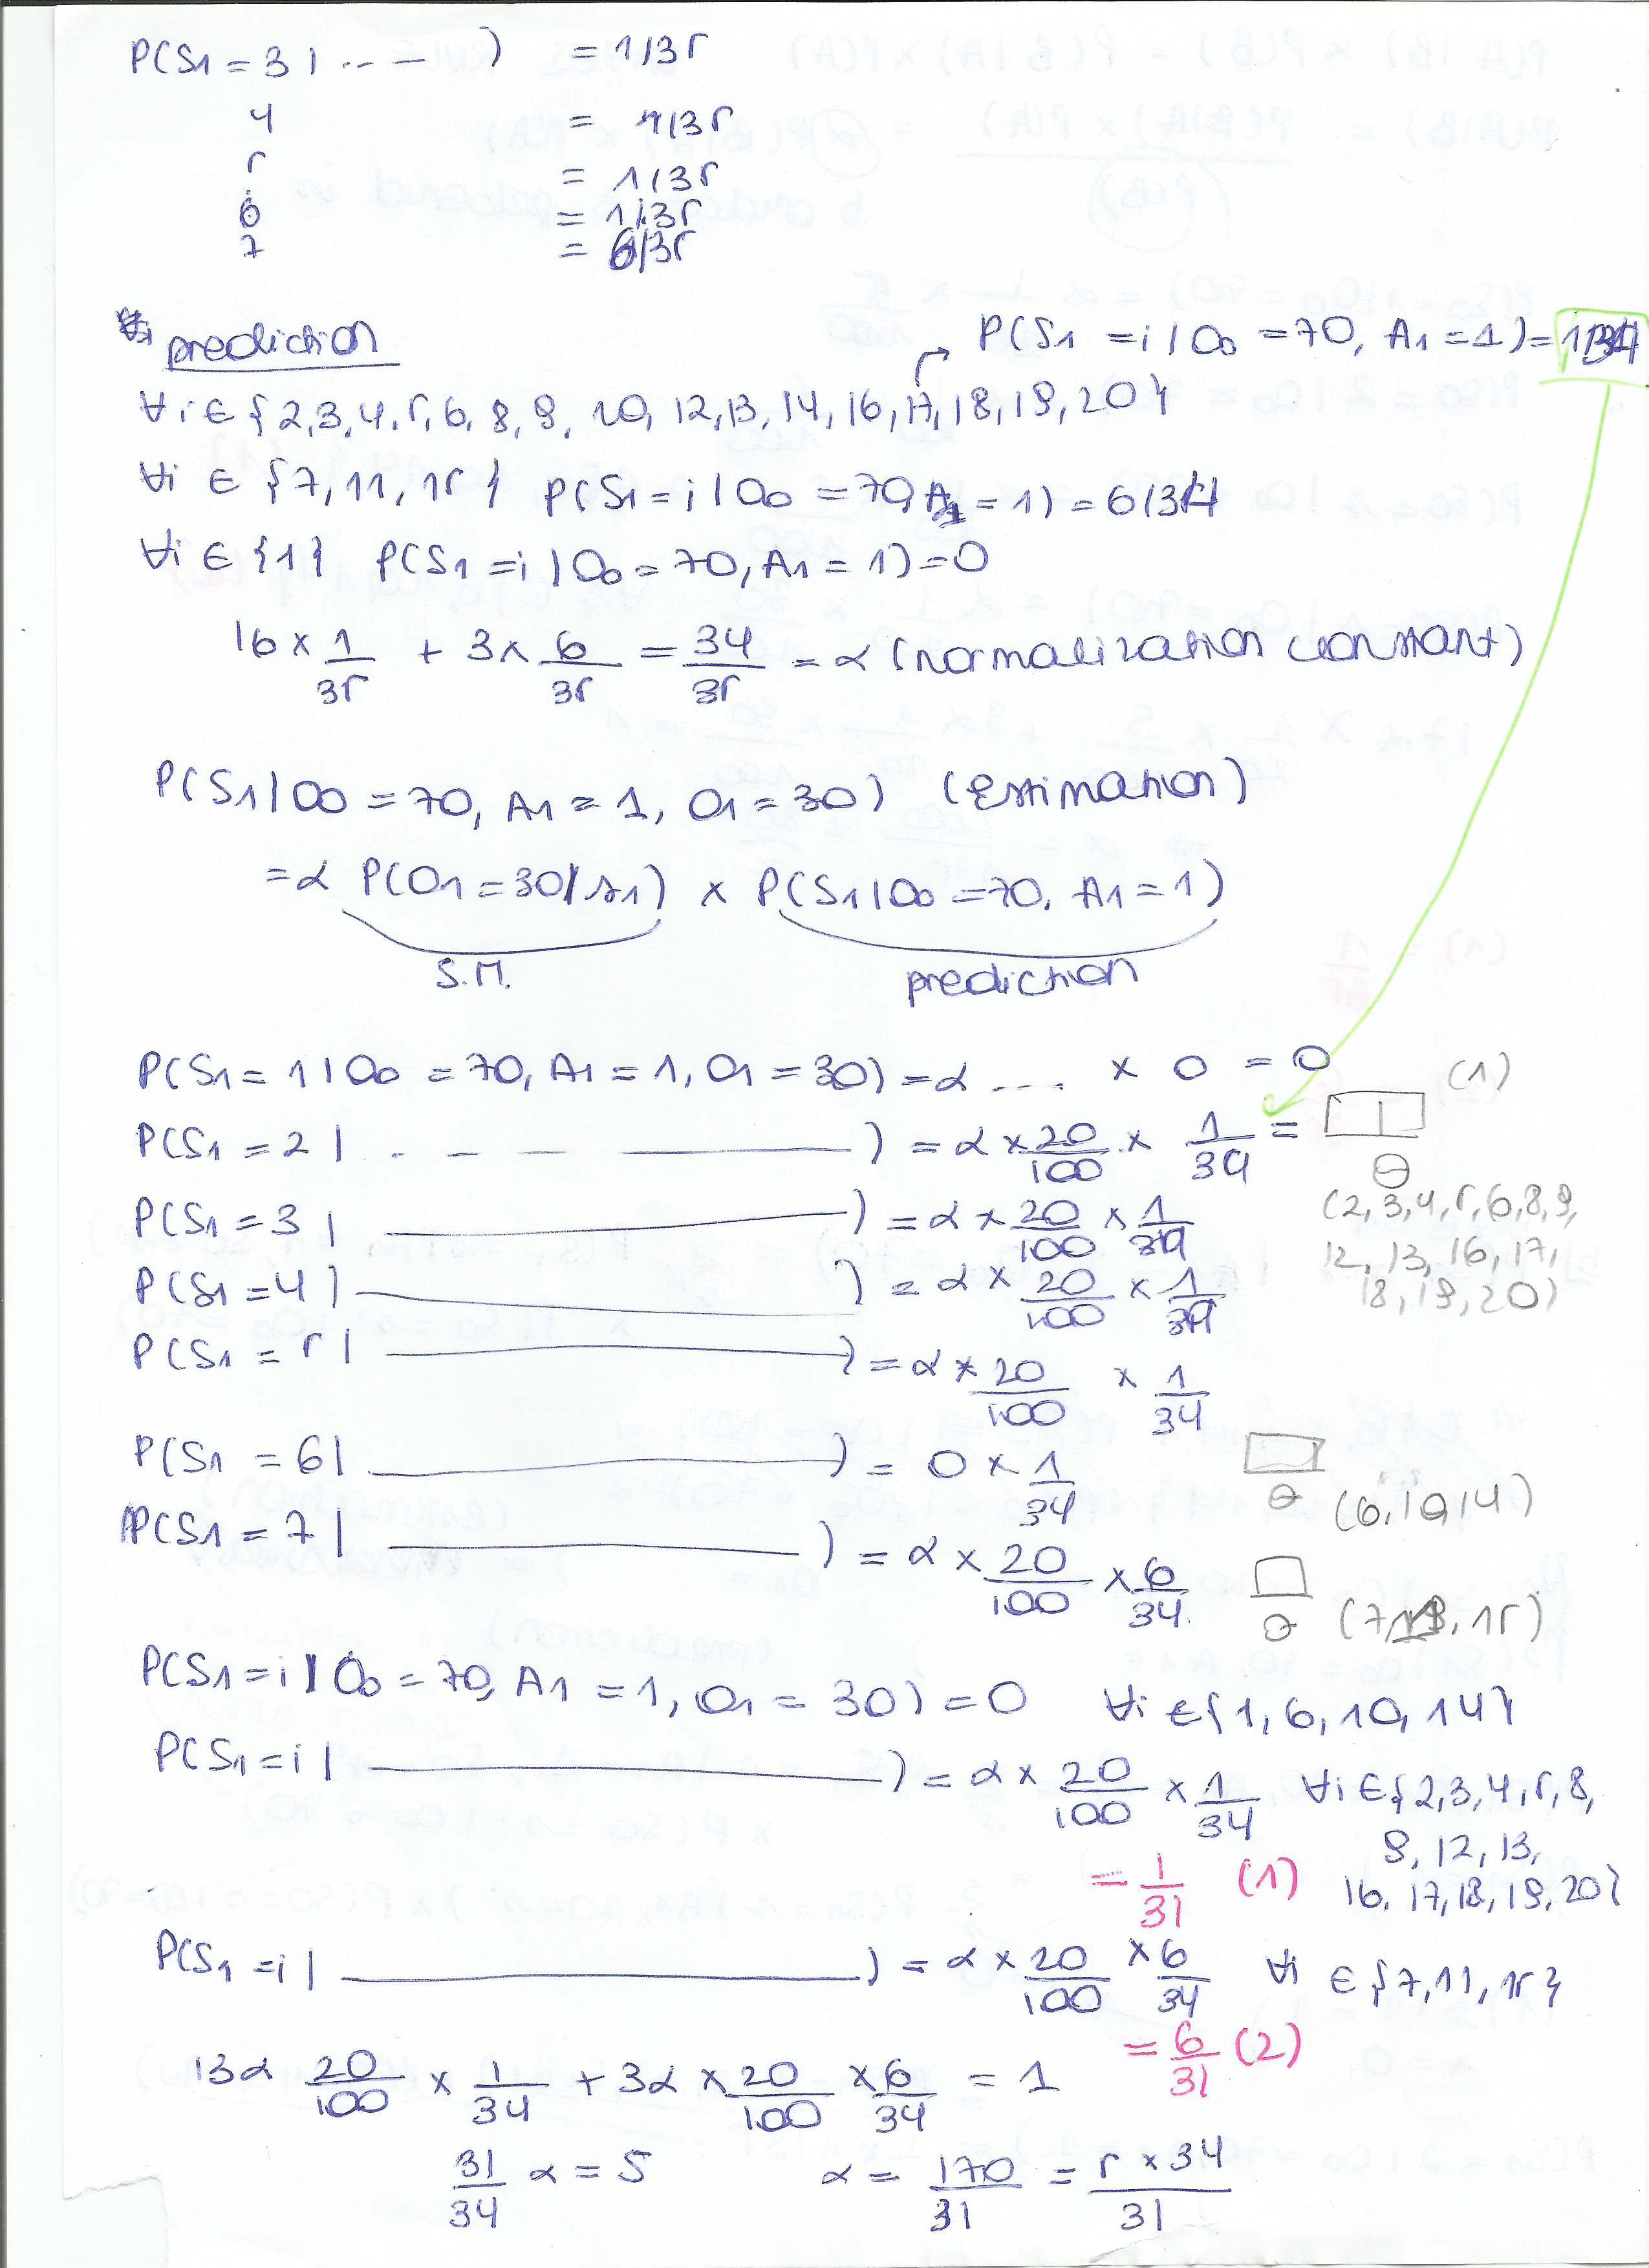 P(S1 = 3 | .. — ) = 1/35
4 = 1/35
5 = 1/35
6 = 1/35
7 = 6/35
prediction
P(S1 = i / O0 = 70, A1 = 1) = 1/34
∀i ∈ {2,3,4,5,6,8,9,10,12,13,14,16,17,18,19,20}
∀i ∈ {7,11,15} P(S1 = i / O0 = 70, A1 = 1) = 6/34
∀i ∈ {1} P(S1 = i / O0 = 70, A1 = 1) = 0
16 × 1/35 + 3 × 6/35 = 34/35 = α (normalization constant)
P(S1 | O0 = 70, A1 = 1, O1 = 30) (Estimation)
= α P(O1 = 30 | s1) × P(S1 | O0 = 70, A1 = 1)
S.M. prediction
P(S1 = 1 | O0 = 70, A1 = 1, O1 = 30) = α ... × 0 = 0 (1)
P(S1 = 2 | . — — — ) = α × 20/100 × 1/34 =
P(S1 = 3 | ) = α × 20/100 × 1/34 (2,3,4,5,6,8,9,
P(S1 = 4 ) ) = α × 20/100 × 1/34 12, 13, 16, 17,
18, 19, 20)
P(S1 = 5 | ) = α × 20/100 × 1/34
P(S1 = 6 | ) = 0 × 1/34 (6,10,14)
P(S1 = 7 | ) = α × 20/100 × 6/34 (7, , 15)
P(S1 = i | O0 = 70, A1 = 1, O1 = 30) = 0 ∀i ∈ {1, 6, 10, 14}
P(S1 = i | ) = α × 20/100 × 1/34 ∀i ∈ {2,3,4,5,8,
9, 12, 13,
= 1/31 (1) 16, 17, 18, 19, 20}
P(S1 = i | ) = α × 20/100 × 6/34 ∀i ∈ {7, 11, 15}
= 6/31 (2)
13α 20/100 × 1/34 + 3α × 20/100 × 6/34 = 1
31/34 α = 5 α = 170/31 = 5 × 34/31